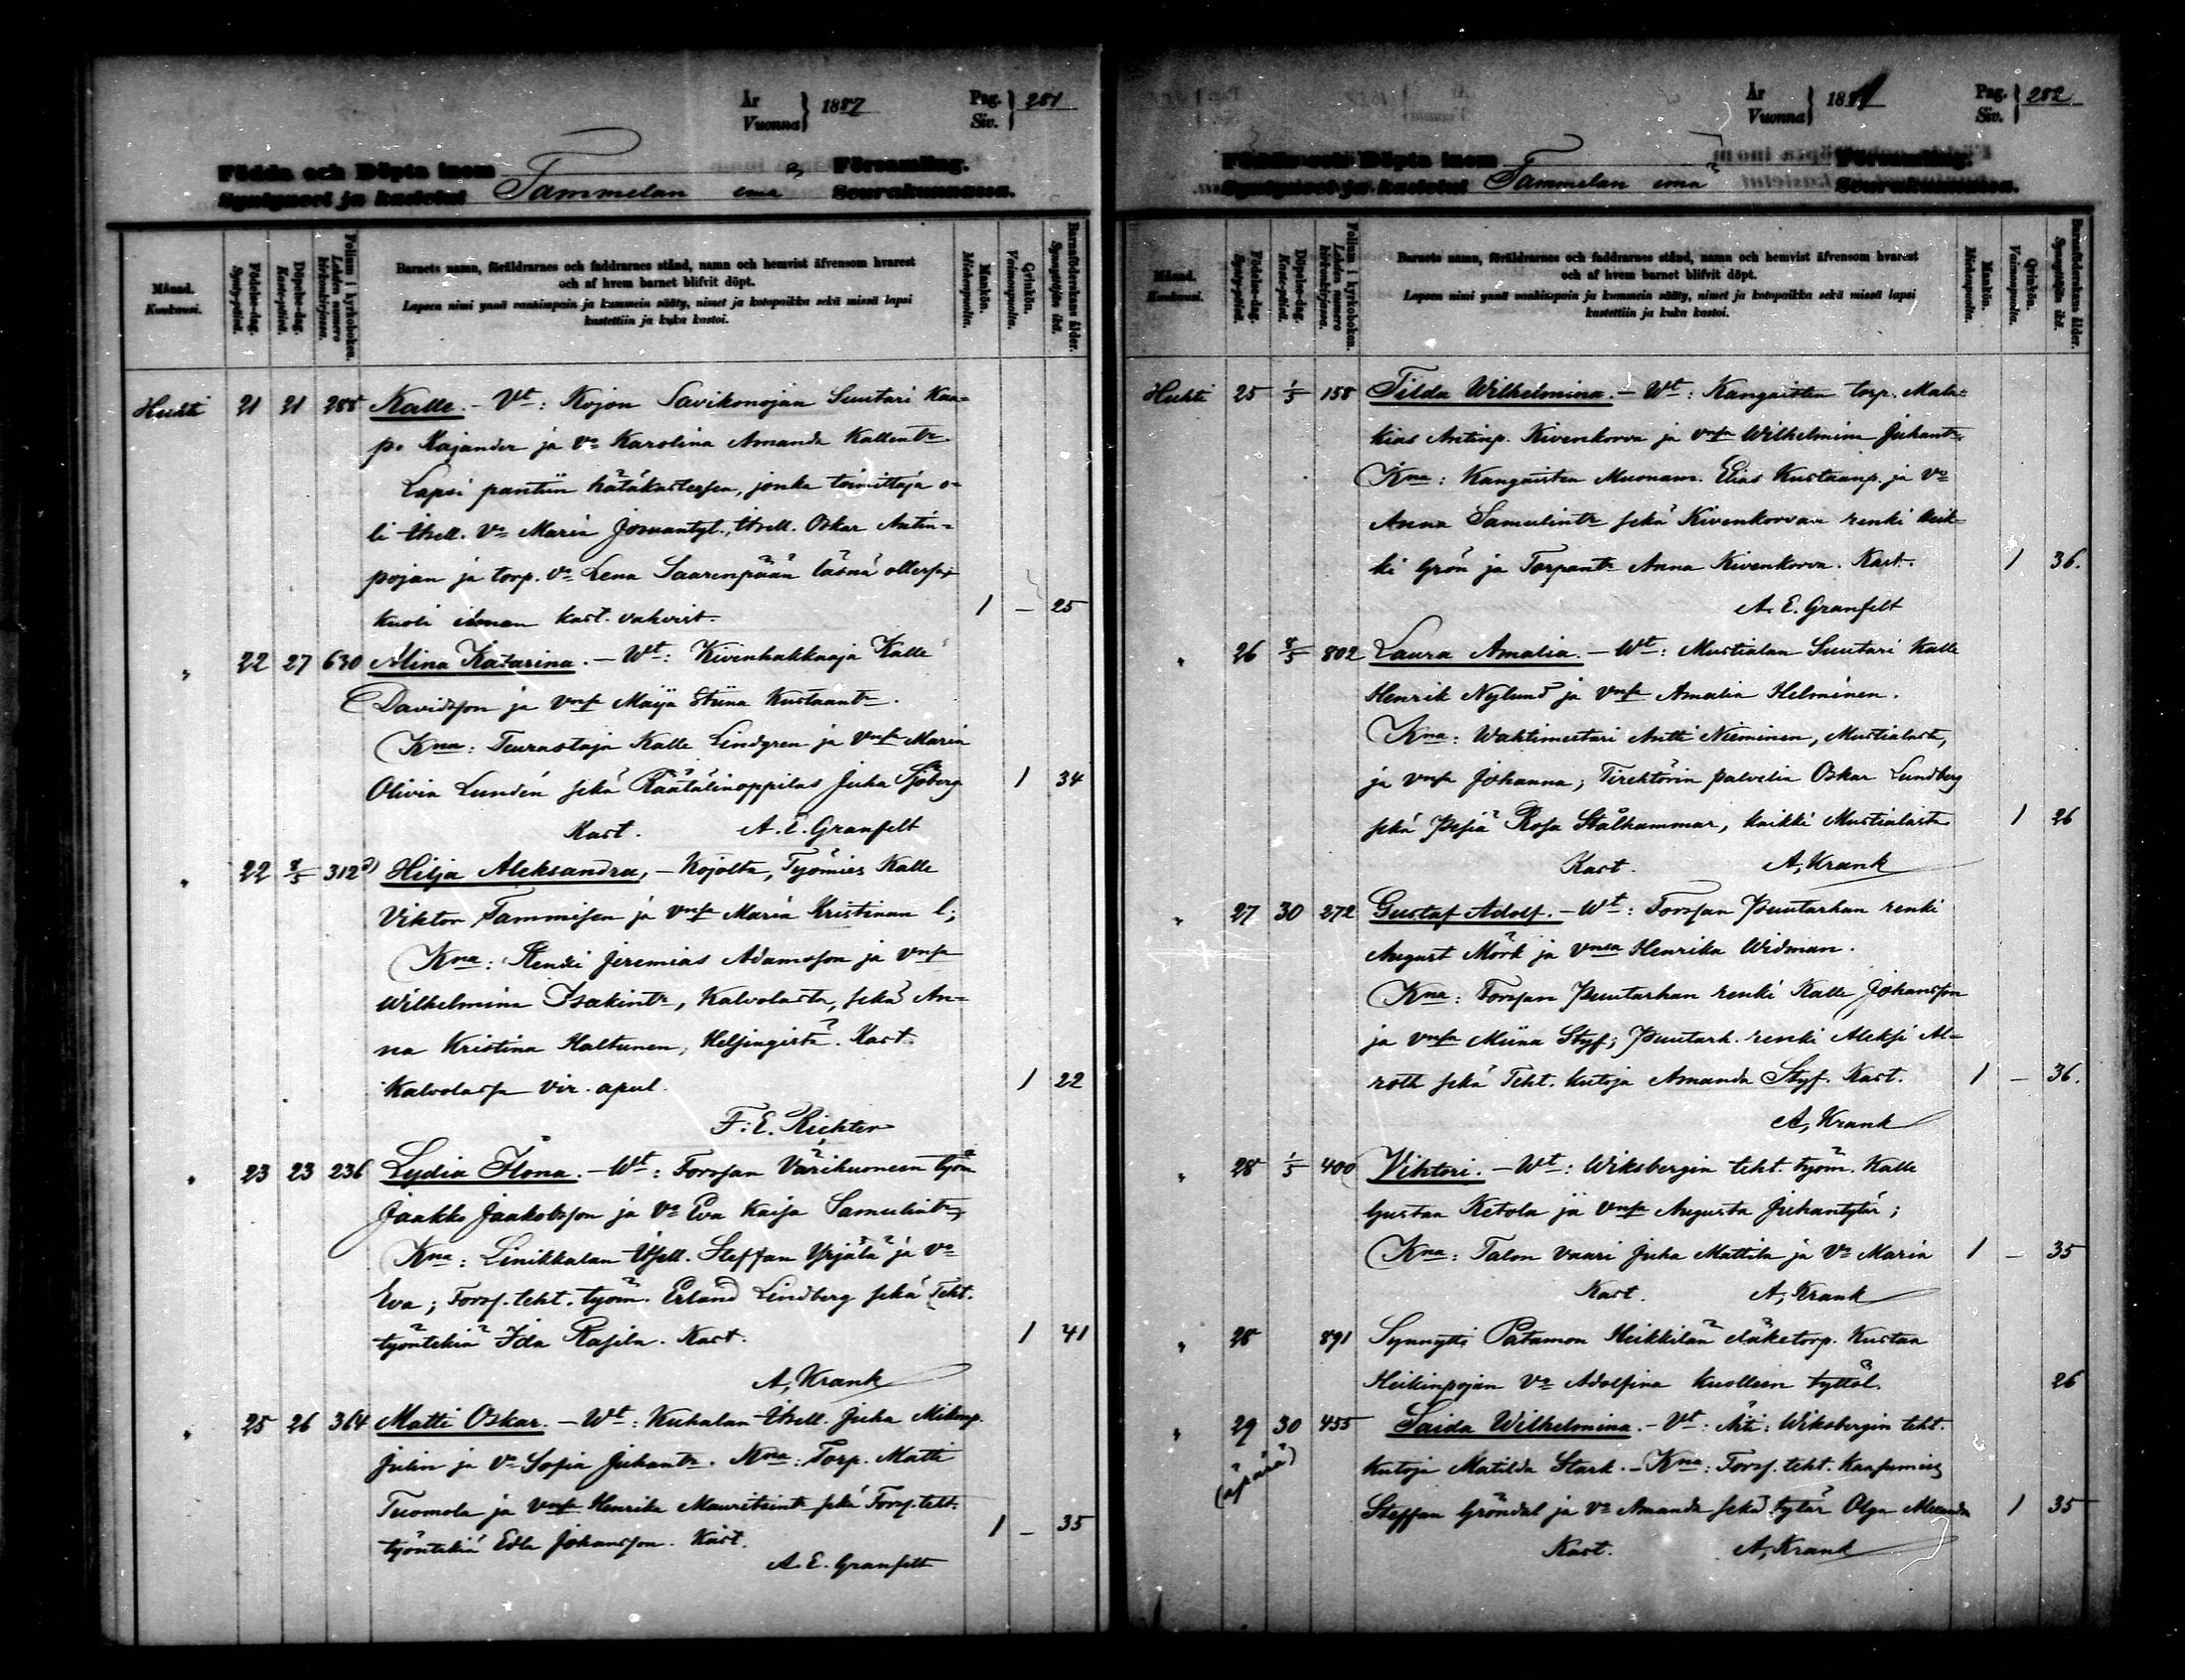 År
Vuonna } 1887 Pag.
Siv. } 281
Födda och Döpta inom Församling.
Syntyneet ja kastetut Tammelan emä Seurakunnassa.
Månad.
Kuukausi.
Födelse-dag.
Synty-päivä.
Döpelse-dag.
Kaste-päivä.
Folium i kyrkoboken.
Lehden numero
kirkonkirjassa.
Barnets namn, föräldrarnes och faddrarnes stånd, namn och hemvist äfvensom hvarest
och af hvem barnet blifvit döpt.
Lapsen nimi ynnä vanhinpain ja kummein sääty, nimet ja kotopaikka sekä missä lapsi
kastettiin ja kuka kastoi.
Mankön.
Miehenpuolta.
Qvinkön.
Vaimonpuolta.
Barnaföderskans ålder.
Synnyttäjän ikä.
Huhti 21 21 288 Kalle. - Vt: Kojon Savikonojan Suutari Kaa=
po Kajander ja Vo Karolina Amanda Kallentr.
Lapsi pantiin hätäkasteesen, jonka toimittaja o-
li Itsell. Vo Maria Josuantyt., Itsell. Oskar Antin=
pojan ja torp. Vo Lena Saarenpään läsnä ollessa;
kuoli ilman kast. vahvist. 1 - 25
" 22 27 630 Alina Katarina. - Wt: Kivenhakkaaja Kalle
Davidsson ja Vmsa Maija Stiina Kustaantr.
Kna: Teurastaja Kalle Lindgren ja Vmsa Maria
Olivia Lundén sekä Räätälinoppilas Juha Sjöberg 1 34
Kast. A. E. Granfelt
" 22 8/5 312 Hilja Aleksandra, - Kojolta, Työmies Kalle
Viktor Tammisen ja Vmsa Maria Kristinan l;
Kna: Renki Jeremias Adamsson ja Vmsa
Wilhelmina Isakintr, Kalvolasta, sekä An=
na Kristina Haltunen, Helsingistä. Kast.
Kalvolassa vir. apul. 1 22
F. E. Richter
" 23 23 236 Lydia Ilona. - Wt: Forssan Värihuoneen työm
Jaakko Jaakobsson ja Vo Eva Kaisa Samulintr;
Kna: Linikkalan Itsell. Steffan Yrjälä ja Vo
Eva; Forss. teht. työm. Erland Lindberg sekä Teht.
työntekiä Ida Rasila. Kast. 1 41
A. Krank
" 25 26 364 Matti Oskar. - Wt: Kuhalan Itsell. Juha Mikonp.
Julin ja Vo Sofia Juhantr. Kna: Torp. Matti
Tuomola ja Vmsa Henrika Mauritsintr sekä Forss. teht.
työntekiä Edla Johansson. Kast. 1 - 35
A. E. Granfelt
År
Vuonna } 188 Pag.
Siv. } 282
Födda och Döpta inom Församling.
Syntyneet ja kastetut Tammelan emä Seurakunnassa.
Månad.
Kuukausi.
Födelse-dag.
Synty-päivä.
Döpelse-dag.
Kaste-päivä.
Folium i kyrkoboken.
Lehden numero
kirkonkirjassa.
Barnets namn, föräldrarnes och faddrarnes stånd, namn och hemvist äfvensom hvarest
och af hvem barnet blifvit döpt.
Lapsen nimi ynnä vanhinpain ja kummein sääty, nimet ja kotopaikka sekä missä lapsi
kastettiin ja kuka kastoi.
Mankön.
Miehenpuolta.
Qvinkön.
Vaimonpuolta.
Barnaföderskans ålder.
Synnyttäjän ikä.
Huhti 25 1/5 158 Tilda Wilhelmina. - Wt: Kangaisten torp. Mala=
kias Antinp. Kivenkorva ja Vmsa Wilhelmina Juhantr.
Kna: Kangaisten Muonam. Elias Kustaanp. ja Vo
Anna Samulintr sekä Kivenkorvan renki Heik-
ki Grön ja Torpantr Anna Kivenkorva. Kast. 1 36.
A. E. Granfelt
" 26 8/5 802 Laura Amalia. - Wt: Mustialan Suutari Kalle
Henrik Nylund ja Vmsa Amalia Helminen.
Kna: Wahtimestari Antti Nieminen, Mustialasta,
ja Vmsa Johanna; Tirektörin palvelia Oskar Lundberg
sekä Pesiä Rosa Stålhammar, kaikki Mustialasta 1 26
Kast. A. Krank
" 27 30 272 Gustaf Adolf. - Wt: Forssan Puutarhan renki
August Mörk ja Vmsa Henrika Widman.
Kna: Forssan Puutarhan renki Kalle Johansson
ja Vmsa Miina Styf; Puutarh. renki Aleksi Al-
roth sekä Teht. kutoja Amanda Styf. Kast. 1 - 36.
A. Krank
" 28 1/5 400 Vihtori. - Wt: Wiksbergin teht. työm. Kalle
Gustaa Ketola ja Vmsa Augusta Juhantytär;
Kna: Talon vaari Juha Mattila ja Vo Maria 1 - 35
Kast. A. Krank
" 28 891 Synnytti Patamon Heikkilän eläketorp. Kustaa
Heikinpojan Vo Adolfina kuolleen tyttöl. 26
" 29 30 455 Saida Wilhelmina. - Vt: Äiti: Wiksbergin teht.
(äpärä) kutoja Matilda Stark. - Kna: Forss. teht. Kaasumies
Steffan Gröndal ja Vo Amanda sekä tytär Olga 1 35
Kast. A. Krank